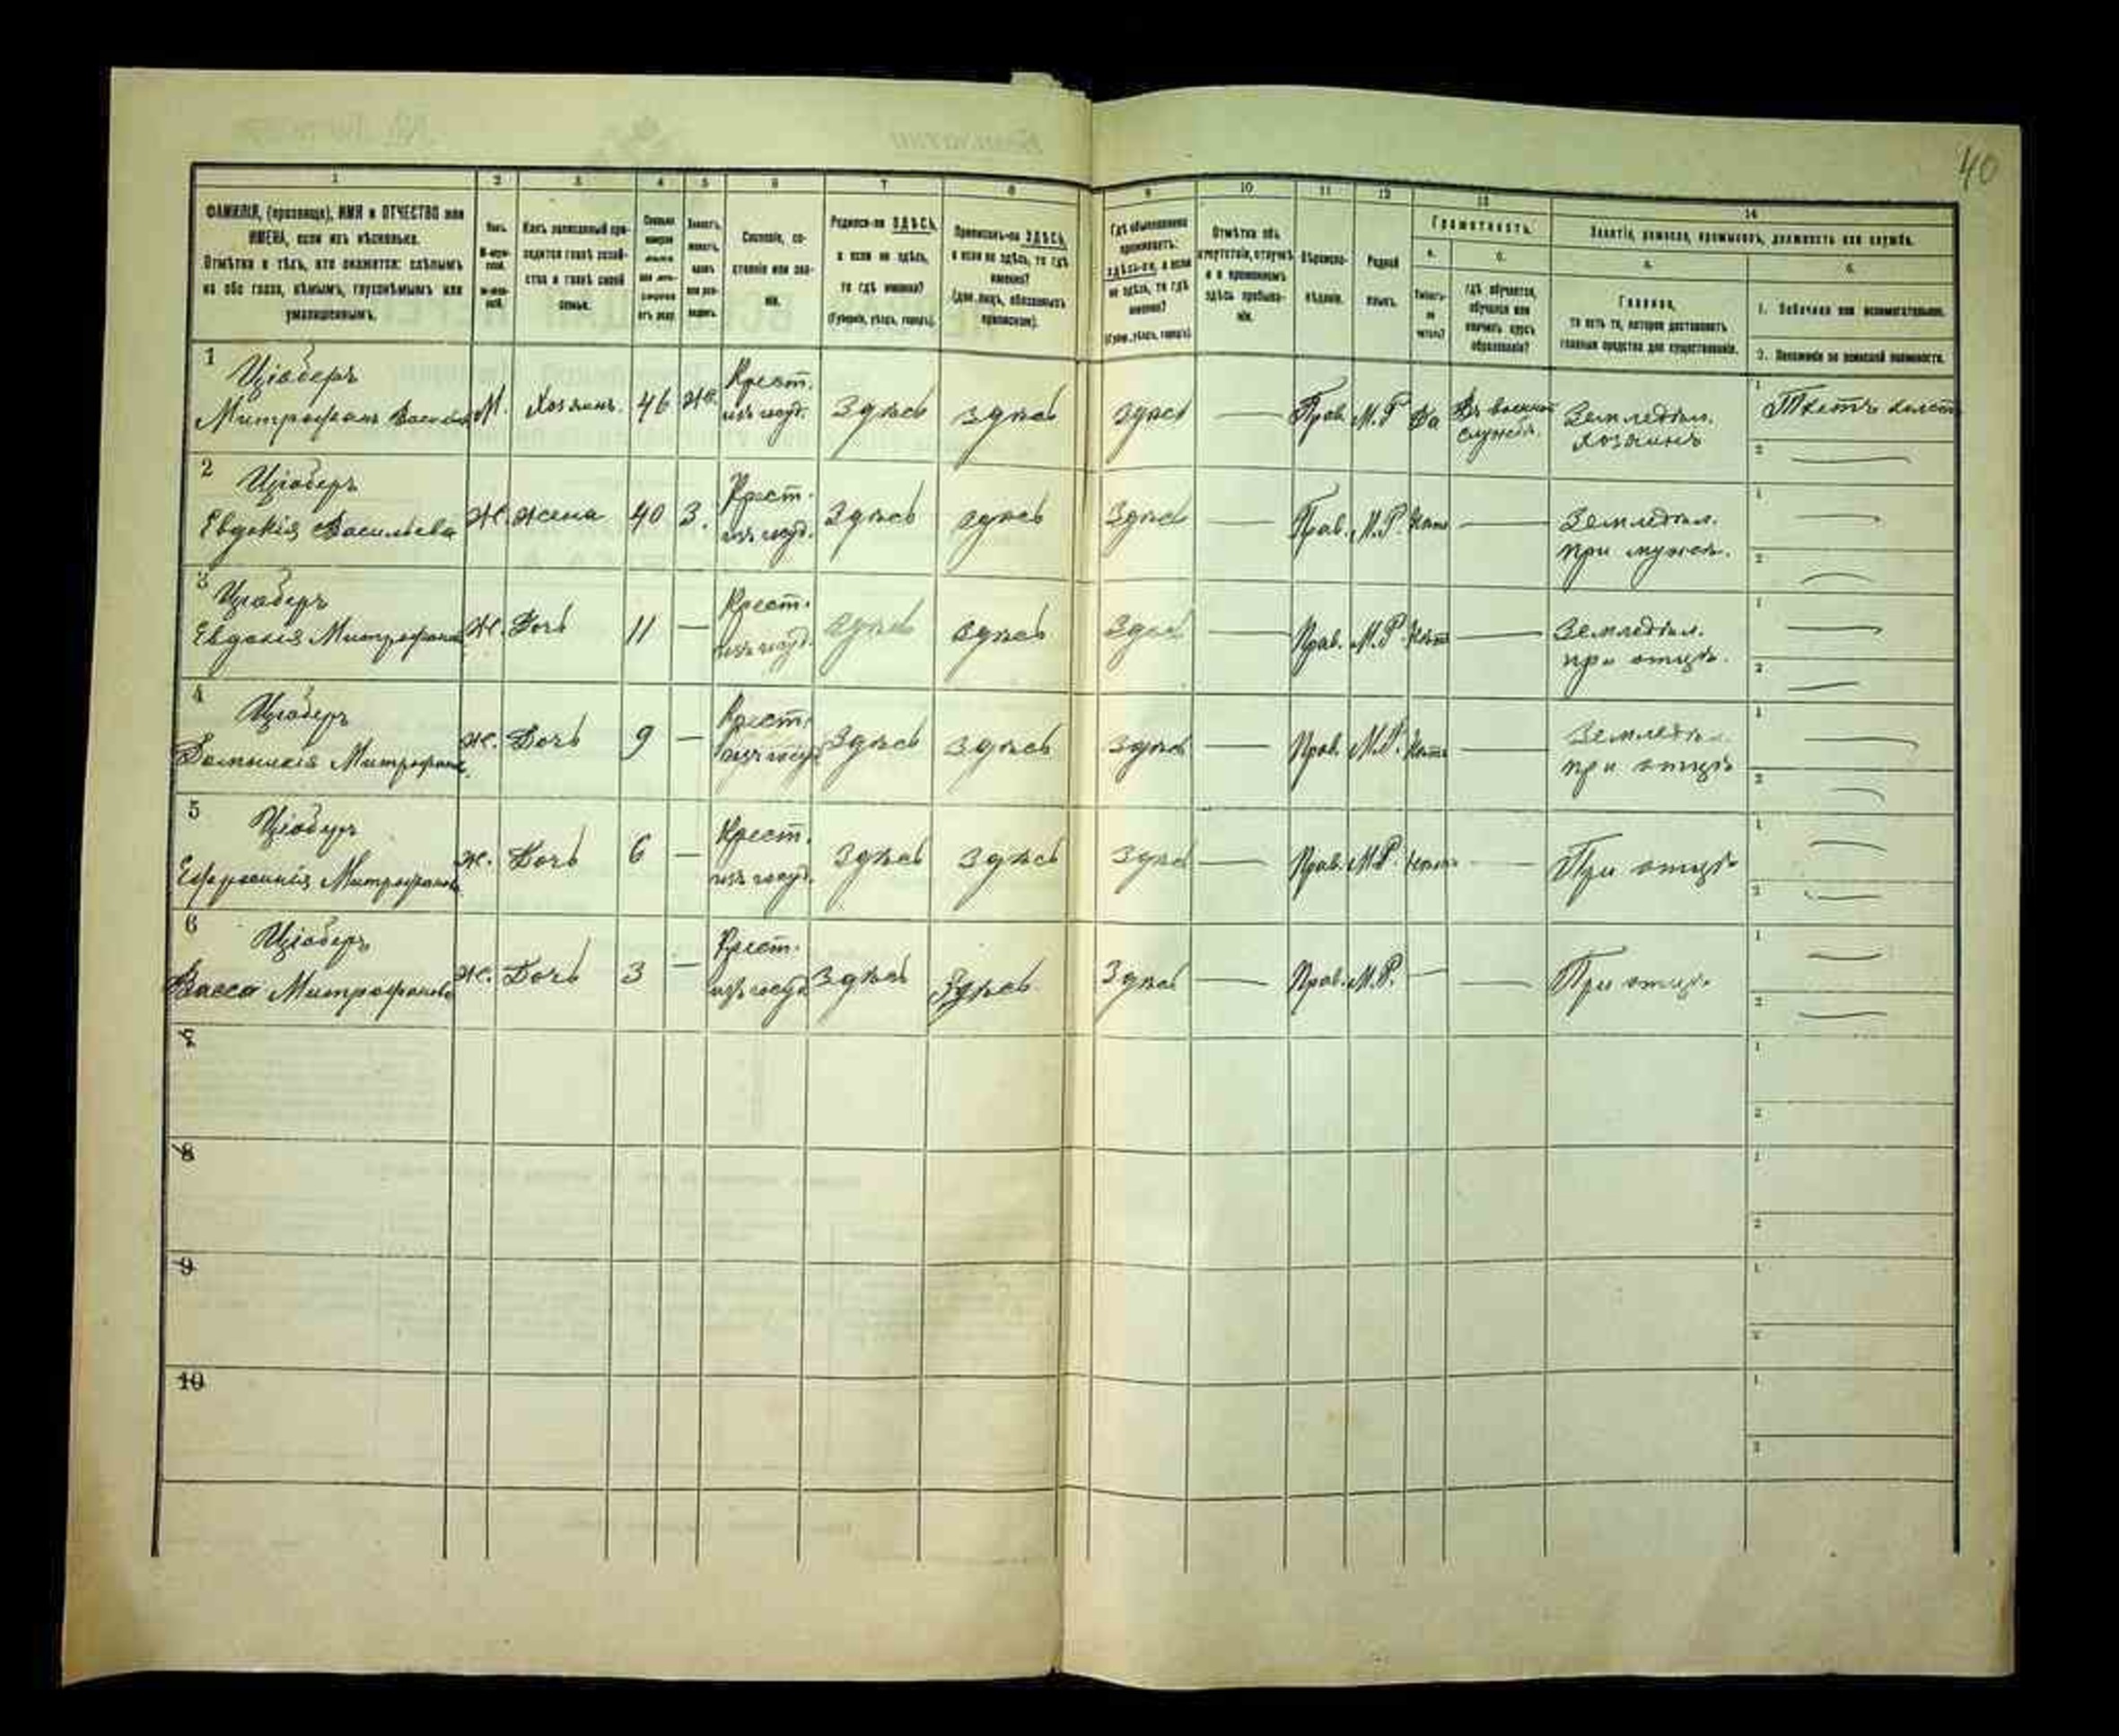 40
1 2 3 4 5 6 7 8 9 10 11 12 13 14
ФАМИЛІЯ, (прозвище), ИМЯ и ОТЧЕСТВО или
ИМЕНА, если ихъ нѣсколько.
Отмѣтка о тѣхъ, кто окажется: слѣпымъ
на оба глаза, нѣмымъ, глухонѣмымъ или
умалишеннымъ.
Какъ записанный при-
ходится главѣ хозяй-
ства и главѣ своей
семьи.
Сословіе, со-
стояніе или зва-
ніе.
Родился-ли ЗДѢСЬ,
а если не здѣсь,
то гдѣ именно?
(Губернія, уѣздъ, городъ).
Приписанъ-ли ЗДѢСЬ,
а если не здѣсь, то гдѣ
именно?
(для лицъ, обязанныхъ
припискою).
Гдѣ обыкновенно
проживаетъ:
здѣсь-ли, а если
не здѣсь, то гдѣ
именно?
(Губер., уѣздъ, городъ).
Отмѣтка объ
отсутствіи, отлучкѣ
и о временномъ
здѣсь пребыва-
ніи.
Вѣроиспо-
вѣданіе.
Родной
языкъ.
Грамотность.
а.
Умѣетъ-
ли
читать?
б.
гдѣ обучается,
обучался или
кончилъ курсъ
образованія?
Занятіе, ремесло, промыселъ, должность или служба.
а.
Главное,
то есть то, которое доставляетъ
главныя средства для существованія.
б.
1. Побочное или вспомогательное.
2. Положеніе по воинской повинности.
1 Цюберъ
Митрофанъ М. Хозяинъ. 46 Ж. Крест.
изъ госуд. Здѣсь здѣсь здѣсь — Прав. М.Р Да Въ военной
службѣ. Земледѣл.
хозяинъ 1 Ткетъ холст
2 —
2 Цюберъ
Евдокія Васильева Ж. жена 40 З. Крест.
изъ госуд. Здѣсь здѣсь Здѣсь — Прав. М.Р. Нѣтъ — Земледѣл.
при мужѣ. 1 —
2 —
3 Цюберъ
Евдокія Митрофанов Ж. Дочь 11 — Крест.
изъ госуд. Здѣсь здѣсь Здѣсь — Прав. М.Р Нѣтъ — Земледѣл.
при отцѣ. 1 —
2 —
4 Цюберъ
Домникія Митрофан ж. Дочь 9 — Крест.
изъ госуд Здѣсь Здѣсь Здѣсь — Прав. М.Р. Нѣтъ — Земледѣл.
при отцѣ 1 —
2 —
5 Цюберъ
Ефросинія Митрофанов ж. Дочь 6 — Крест.
изъ госуд. Здѣсь Здѣсь Здѣсь — Прав. М.Р. Нѣтъ — При отцѣ 1 —
2 —
6 Цюберъ
Васса Митрофанова ж. Дочь 3 — Крест.
изъ госуд Здѣсь Здѣсь Здѣсь — Прав. М.Р. — — При отцѣ 1 —
2 —
7 1
2
8 1
2
9 1
2
10 1
2